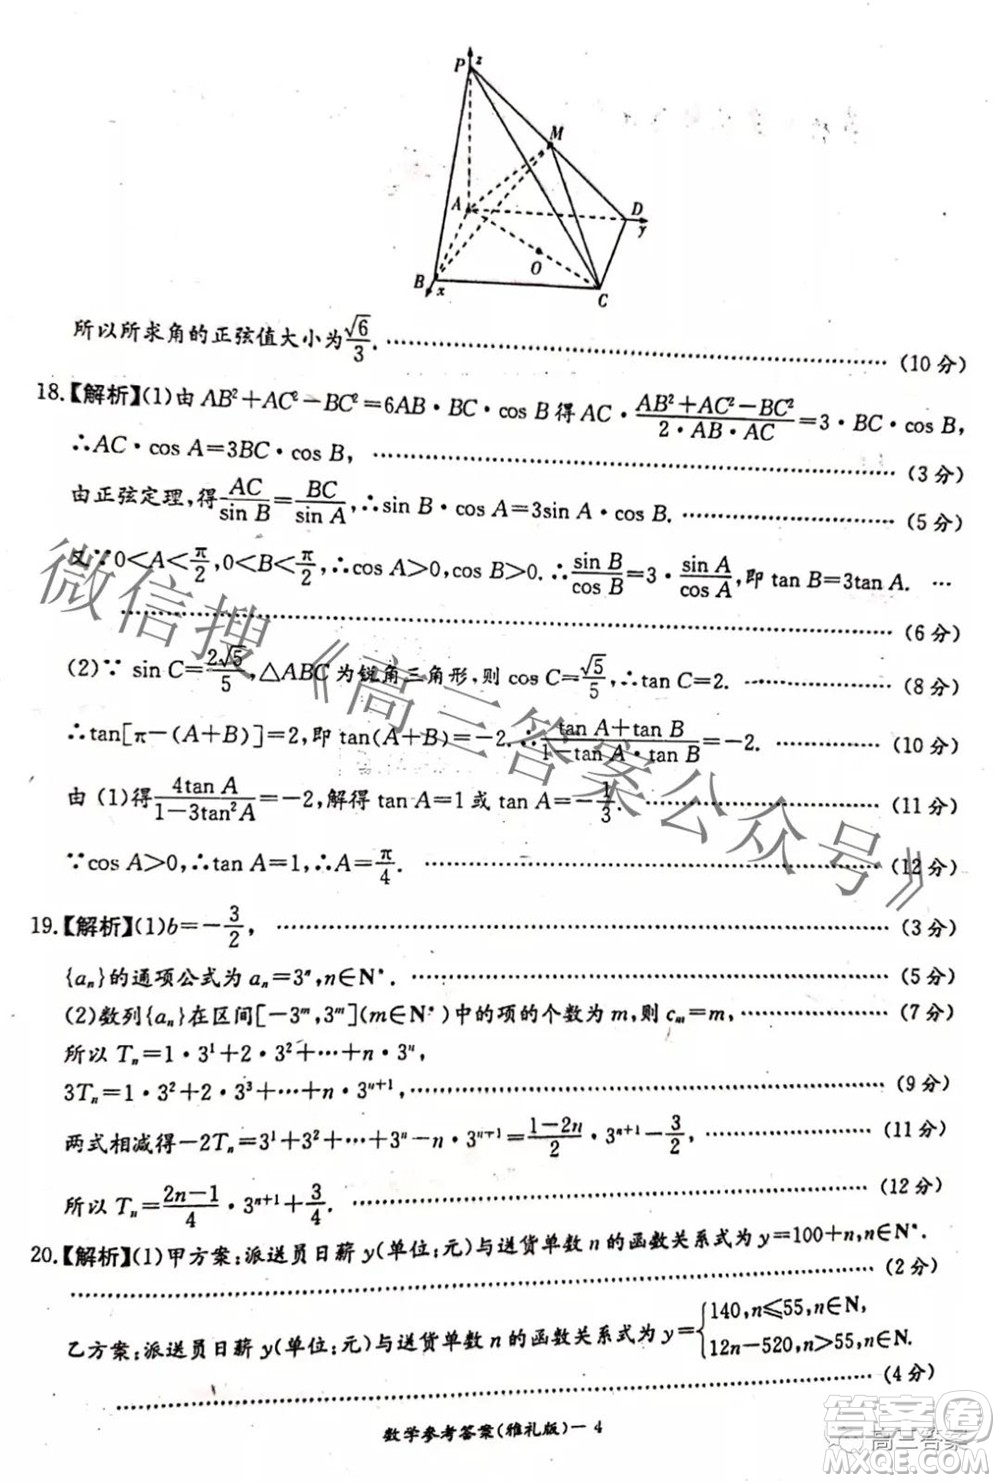 P z
M
A D
y
O
B
x C
所以所求角的正弦值大小为√6/3. (10分)
18.【解析】(1)由 AB²+AC²-BC²=6AB·BC·cos B得 AC·(AB²+AC²-BC²)/(2·AB·AC)=3·BC·cos B,
∴AC·cos A=3BC·cos B, (3分)
由正弦定理,得AC/sin B=BC/sin A,∴sin B·cos A=3sin A·cos B. (5分)
又∵0<A<π/2,0<B<π/2,∴cos A>0,cos B>0.∴sin B/cos B=3·sin A/cos A,即 tan B=3tan A. …
(6分)
(2)∵ sin C=2√5/5,△ABC为锐角三角形,则 cos C=√5/5,∴tan C=2. (8分)
∴tan[π-(A+B)]=2,即 tan(A+B)=-2.∴(tan A+tan B)/(1-tan A·tan B)=-2. (10分)
由 (1)得4tan A/(1-3tan²A)=-2,解得 tan A=1 或 tan A=-1/3. (11分)
∵cos A>0,∴tan A=1,∴A=π/4. (12分)
19.【解析】(1)b=-3/2, (3分)
{aₙ}的通项公式为 aₙ=3ⁿ,n∈N*. (5分)
(2)数列{aₙ}在区间[-3ᵐ,3ᵐ](m∈N*)中的项的个数为 m,则 cₘ=m, (7分)
所以 Tₙ=1·3¹+2·3²+…+n·3ⁿ,
3Tₙ=1·3²+2·3³+…+n·3ⁿ⁺¹, (9分)
两式相减得-2Tₙ=3¹+3²+…+3ⁿ-n·3ⁿ⁺¹=(1-2n)/2·3ⁿ⁺¹-3/2, (11分)
所以 Tₙ=(2n-1)/4·3ⁿ⁺¹+3/4. (12分)
20.【解析】(1)甲方案:派送员日薪 y(单位:元)与送货单数 n 的函数关系式为 y=100+n,n∈N*.
(2分)
乙方案:派送员日薪 y(单位:元)与送货单数 n 的函数关系式为 y={140,n≤55,n∈N,
12n-520,n>55,n∈N.
(4分)
数学参考答案(雅礼版)-4
微信搜《高三答案公众号》
答案圈
高三答案
MXQE.COM